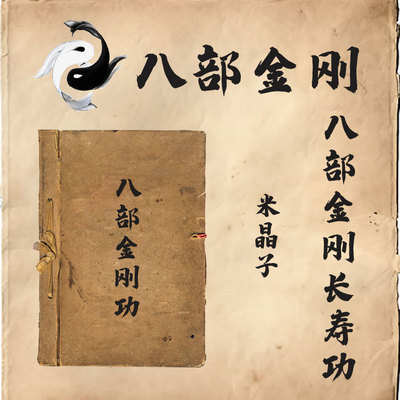 八部金刚
八部金刚长寿功
米晶子
八部金刚功